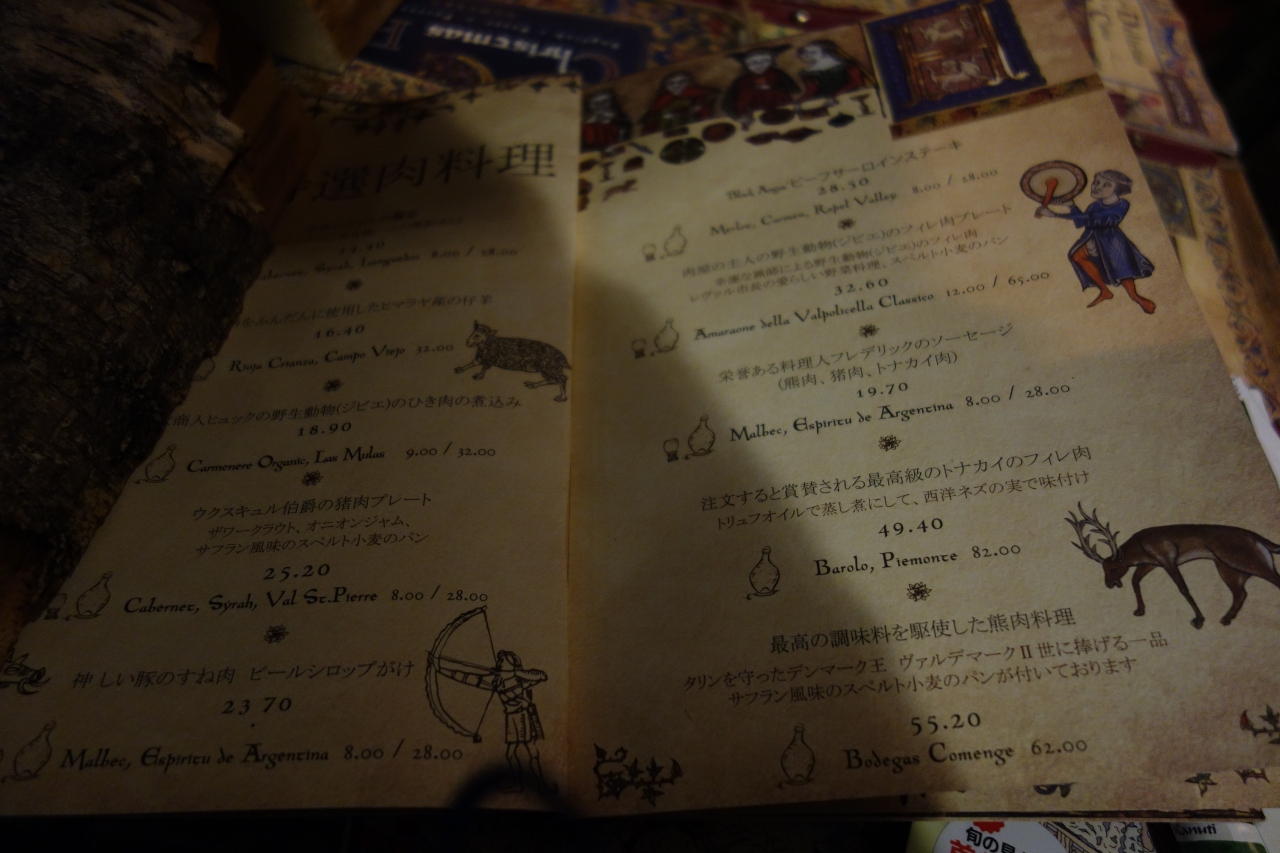 選肉料理
Syrah, Languedoc 8.00 / 28.00
をふんだんに使用したヒマラヤ産の仔羊
16.40
Rioja Crianza, Campo Viejo 32.00
商人ヒュックの野生動物(ジビエ)のひき肉の煮込み
18.90
Carmenere Organic, Las Mulas 9.00 / 32.00
ウクスキュル伯爵の猪肉プレート
ザワークラウト、オニオンジャム、
サフラン風味のスペルト小麦のパン
25.20
Cabernet, Syrah, Val St.Pierre 8.00 / 28.00
神 しい豚のすね肉 ビールシロップがけ
23.70
Malbec, Espiritu de Argentina 8.00 / 28.00
Christmas
Black Angusビーフサーロインステーキ
28.50
Merlot, Carmen, Rapel Valley 8.00 / 28.00
肉屋の主人の野生動物(ジビエ)のフィレ肉プレート
幸運な猟師による野生動物(ジビエ)のフィレ肉
レヴァル市長の愛らしい野菜料理、スペルト小麦のパン
32.60
Amaraone della Valpolicella Classico 12.00 / 65.00
栄誉ある料理人フレデリックのソーセージ
(熊肉、猪肉、トナカイ肉)
19.70
Malbec, Espiritu de Argentina 8.00 / 28.00
注文すると賞賛される最高級のトナカイのフィレ肉
トリュフオイルで蒸し煮にして、西洋ネズの実で味付け
49.40
Barolo, Piemonte 82.00
最高の調味料を駆使した熊肉料理
タリンを守ったデンマーク王 ヴァルデマークⅡ世に捧げる一品
サフラン風味のスペルト小麦のパンが付いております
55.20
Bodegas Comenge 62.00
旬の